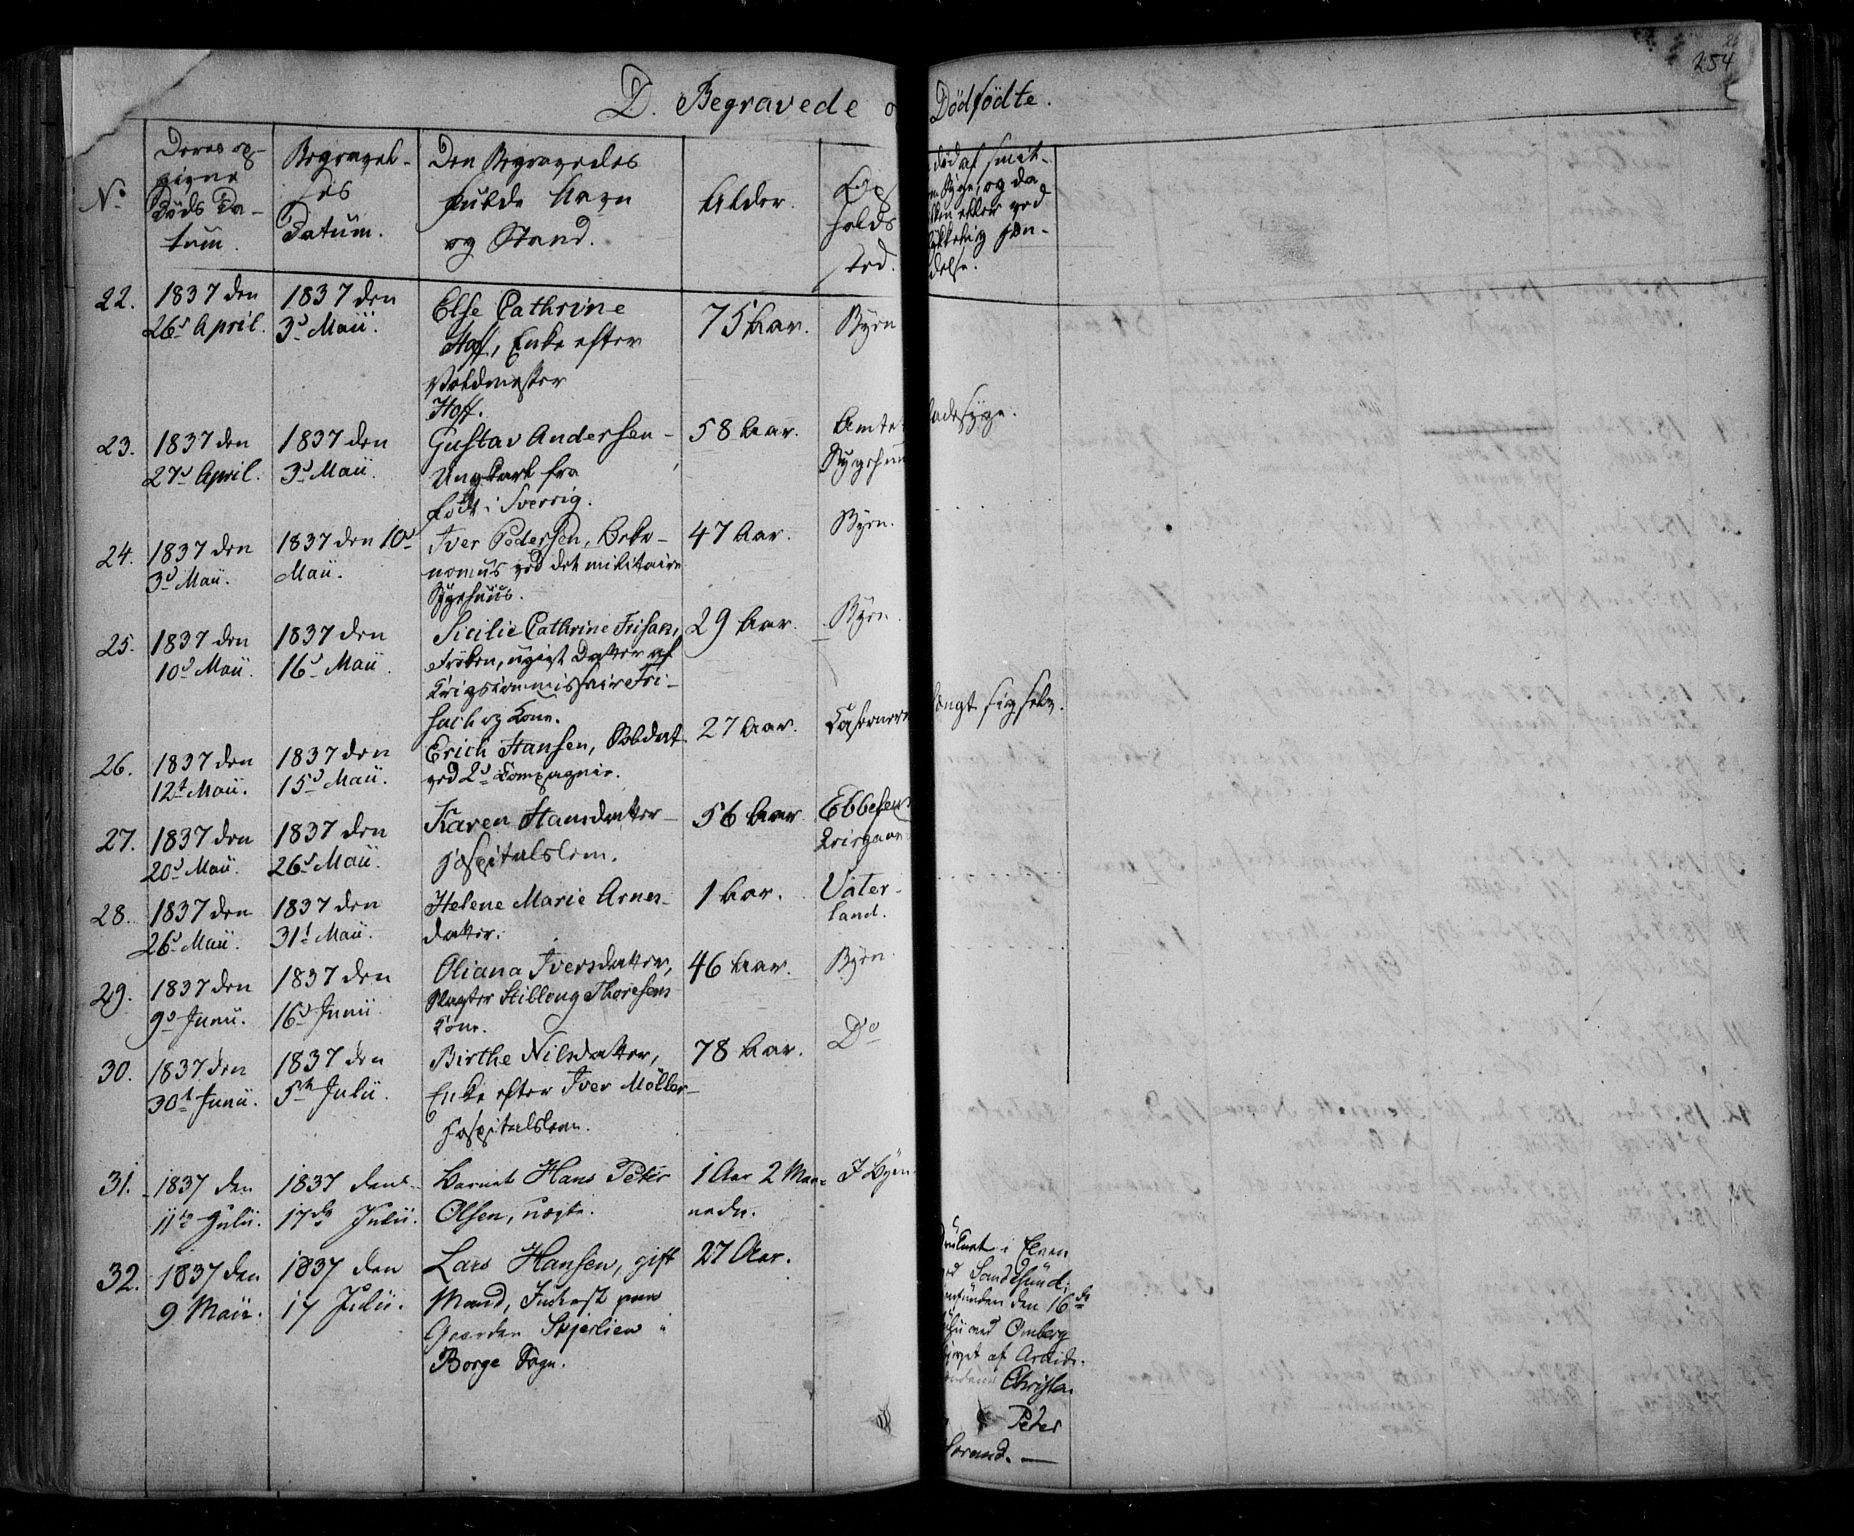 254
D. Begravede o Dødfødte.
No
Deres op-
givne
Døds Da-
tum.
Begravel-
ses
Datum.
Den Begravedes
fulde Navn
og Stand.
Alder.
Op
holds
sted.
død af smit-
Syge, og da
eller ved
ulykkelig Hæn-
delse.
22. 1837 den 26de April. 1837 den 3de Maii.
Else Cathrine
Hoff, Enke efter
Voldmester
Hoff.
75 Aar. Byen
23. 1837 den 27de April. 1837 den 3de Maii.
Gustav Andersen
Ungkarl fra
født i Sverrig.
58 Aar. Amtets
Sygehuus
radesyge.
24. 1837 den 3de Maii. 1837 den 10de Maii.
Iver Pedersen, Oeko-
nomus ved det militaire
Sygehuus.
47 Aar. Byen.
25. 1837 den 10de Maii. 1837 den 16de Maii.
Sicilie Cathrine Frisach,
Frøken, ugivt Datter af
Krigscommissair Fri-
sach og Kone.
29 Aar. Byen.
26. 1837 den 12te Maii. 1837 den 15de Maii.
Erich Hansen, Soldat
ved 2de Compagnie.
27 Aar. Caserner
hængt sig selv.
27. 1837 den 20de Maii. 1837 den 26de Maii.
Karen Hansdatter
Hospitalslem.
56 Aar Ebbesens
28. 1837 den 26de Maii. 1837 den 31te Maii.
Helene Marie Arnes-
datter.
1 Aar. Vater-
land.
29. 1837 den 9de Junii. 1837 den 16de Junii.
Oliana Iversdatter,
Slagter Thoresens
Kone.
46 Aar. Byen.
30. 1837 den 30te Junii. 1837 den 5te Julii.
Birthe Nilsdatter,
Enke efter Iver Möller
Hospitalslem.
78 Aar. Do
31. 1837 den 11te Julii. 1837 den 17de Julii.
Barnet Hans Peter
Olsen, uægte.
1 Aar 2 Maa-
neder.
I Byen
32. 1837 den 9 Maii. 1837 den 17 Julii.
Lars Hansen, gift
Mand, Inderst paa
Gaarden Skjerlien i
Borge Sogn.
27 Aar.
Druknet i Elven
ved Sandesund;
funden den 16de
Julii ved Omberg
af Arbeids-
Christen
Peter